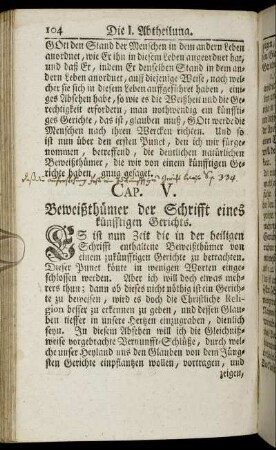 104 Die I. Abtheilung.
GOtt den Stand der Menschen in dem andern Leben
anordnet, wie Er ihn in diesem Leben angeordnet hat,
und daß Er, indem Er denselben Stand in dem an-
dern Leben anordnet, auf diejenige Weise, nach wel-
cher sie sich in diesem Leben aufgeführet haben, eini-
ges Absehen habe, so wie es die Weißheit und die Ge-
rechtigkeit erfordern, man nothwendig ein künffti-
ges Gerichte, das ist, glauben muß, GOtt werde die
Menschen nach ihren Wercken richten. Und so
ist nun über den ersten Punct, den ich mir fürge-
nommen, betreffend, die deutlichen natürlichen
Beweißthümer, die wir von einem künfftigen Ge-
richte haben, gnug gesaget.
p. 334.
CAP. V.
Beweißthümer der Schrifft eines
künfftigen Gerichts.
ES ist nun Zeit die in der heiligen
Schrifft enthaltene Beweißthümer von
einem zukünfftigen Gerichte zu betrachten.
Dieser Punct könte in wenigen Worten einge-
schlossen werden. Aber ich will doch etwas meh-
rers thun; dann ob dieses nicht nöthig ist ein Gerich-
te zu beweisen, wird es doch die Christliche Reli-
gion besser zu erkennen zu geben, und dessen Glau-
ben tieffer in unsere Hertzen einzugraben, dienlich
seyn. In diesem Absehen will ich die Gleichnuß-
weise vorgebrachte Vernunfft-Schlüße, durch wel-
che unser Heyland uns den Glauben von dem Jüng-
sten Gerichte einpflantzen wollen, vortragen, und
zeigen,